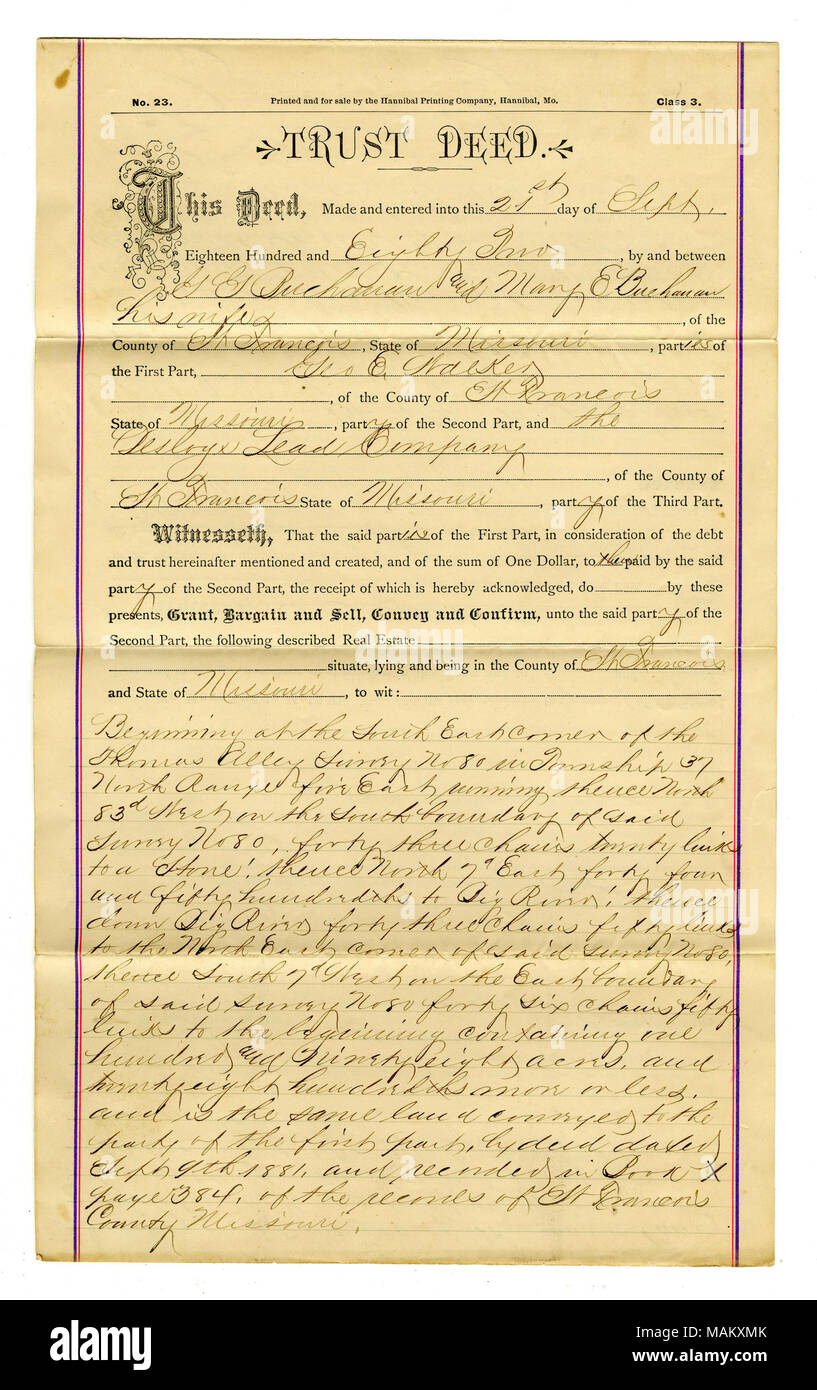 No. 23. Printed and for sale by the Hannibal Printing Company, Hannibal, Mo. Class 3.
TRUST DEED.
This Deed, Made and entered into this 21st day of Sept,
Eighteen Hundred and Eighty Two, by and between
G Buchanan and Mary E Buchanan
his wife, of the
County of St Francois, State of Missouri, parties of
the First Part, Geo E. Walker
, of the County of St Francois
State of Missouri, party of the Second Part, and the
Desloge Lead Company
, of the County of
St Francois State of Missouri, party of the Third Part.
Witnesseth, That the said parties of the First Part, in consideration of the debt
and trust hereinafter mentioned and created, and of the sum of One Dollar, to them paid by the said
party of the Second Part, the receipt of which is hereby acknowledged, do by these
presents, Grant, Bargain and Sell, Convey and Confirm, unto the said party of the
Second Part, the following described Real Estate
situate, lying and being in the County of St Francois
and State of Missouri, to wit:
Beginning at the South East corner of the
Thomas Alley Survey No 80 in Township 37
North Range five East running thence North
83d West on the South boundary of said
Survey No 80, forty three chains twenty links
to a Stone! thence North 7d East forty four
and fifty hundredths to Big River! thence
down Big River forty three chains fifty links
to the North East corner of said survey No 80,
thence South 7d West on the East boundary
of said survey No 80 forty six chains fifty
links to the beginning containing one
hundred and Ninety eight acres, and
twenty eight hundredths more or less.
and is the same land conveyed to the
party of the first part, by deed dated
Sept 9th 1881, and recorded in Book X
page 384, of the records of St Francois
County Missouri.
alamy
alamy
Image ID: MAKXMK
www.alamy.com